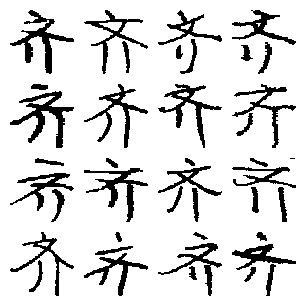 齐齐齐齐
齐齐齐齐
齐齐齐齐
齐齐齐齐